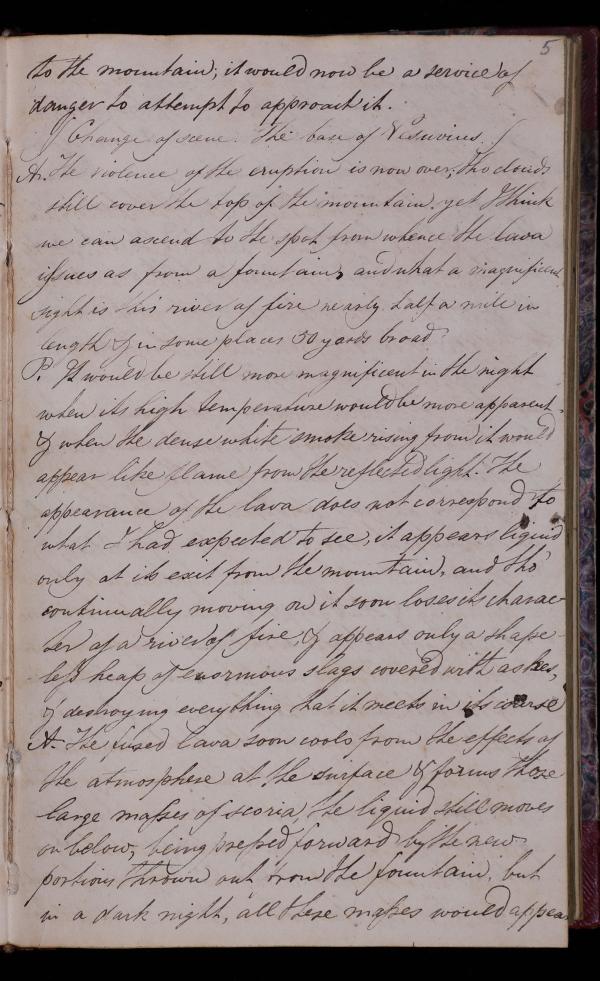 5
to the mountain; it would now be a service of
danger to attempt to approach it.
( Change of scene. The base of Vesuvius. (
A. The violence of the eruption is now over, tho clouds
still cover the top of the mountain, yet I think
we can ascend to the spot from whence the lava
issues as from a fountain, and what a magnificent
sight is this river of fire nearly half a mile in
length & in some places 30 yards broad.
P. It would be still more magnificent in the night
when its high temperature would be more apparent,
& when the dense white smoke rising from it would
appear like flame from the reflected light. The
appearance of the lava does not correspond to
what I had expected to see, it appears liquid
only at its exit from the mountain, and tho'
continually moving on it soon loses its charac-
ter of a river of fire, & appears only a shape-
less heap of enormous slags covered with ashes,
& destroying everything that it meets in its course
A. The fused lava soon cools from the effects of
the atmosphere at the surface & forms those
large masses of scoria, the liquid still moves
on below, being pressed forward by the new
portions thrown out from the fountain, but
in a dark night, all these masses would appea